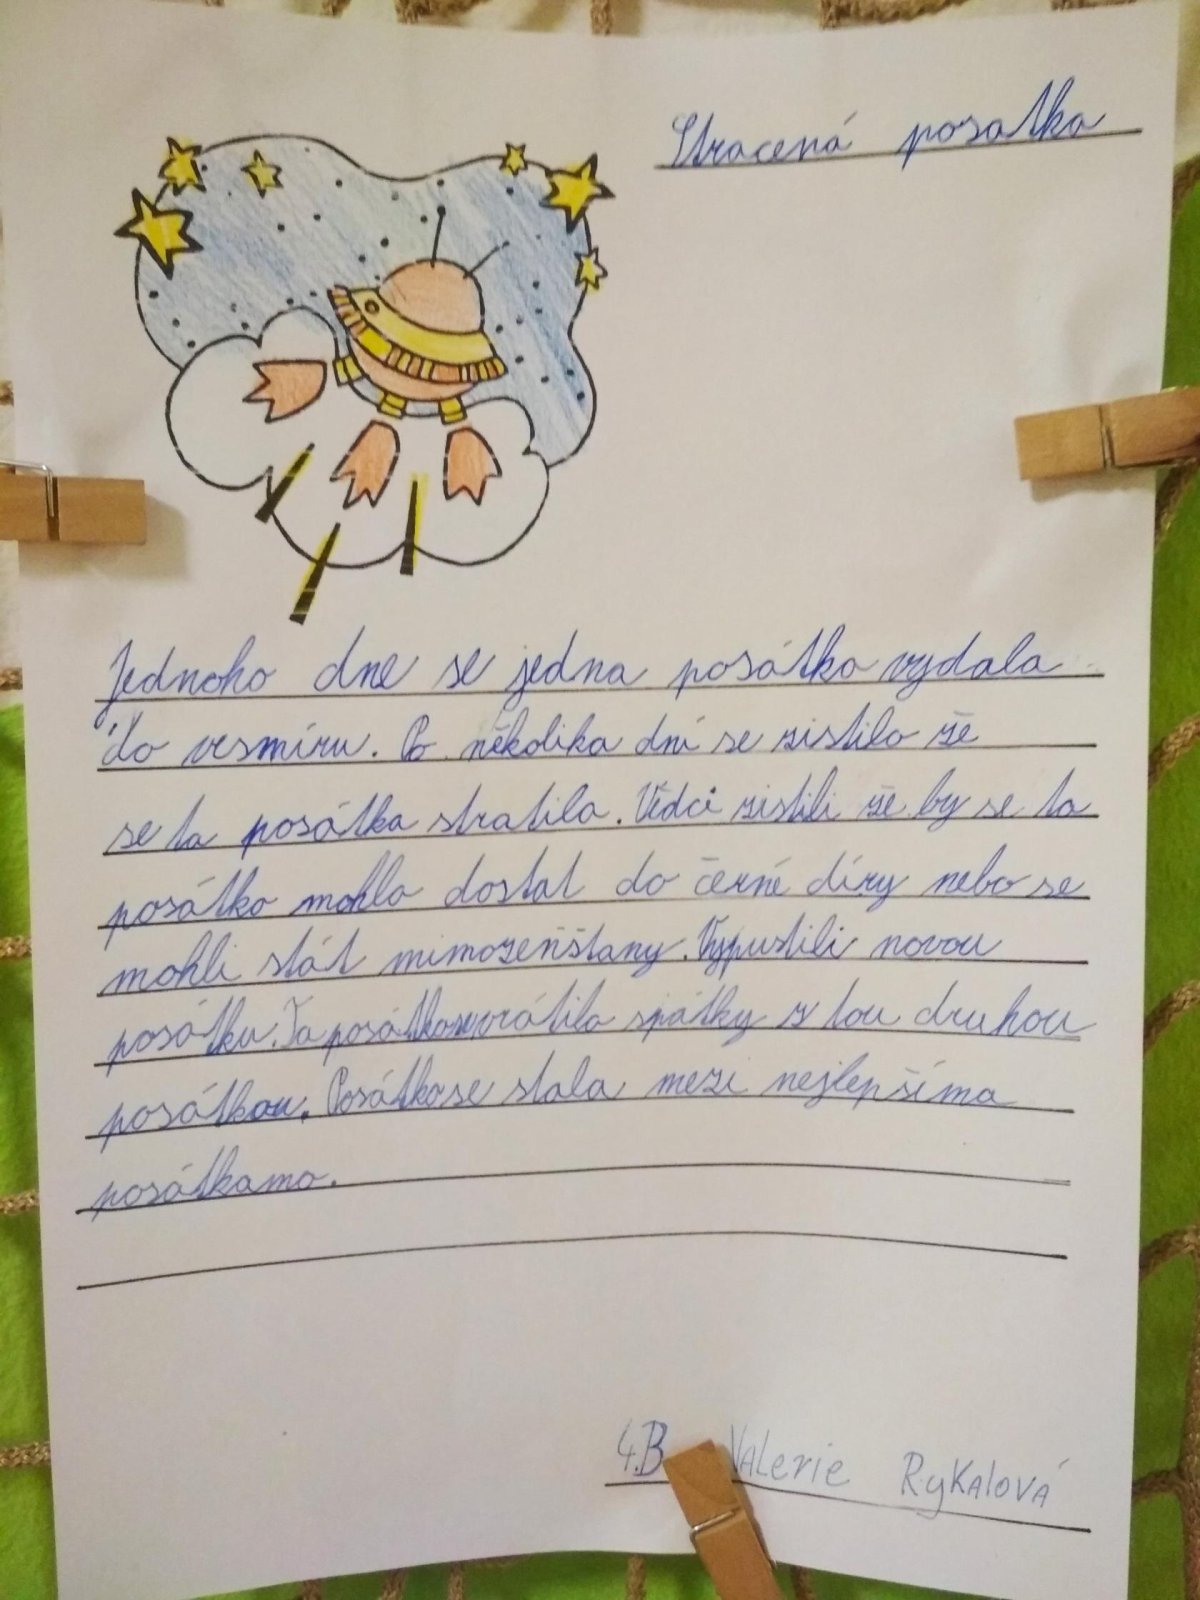 Stracená posatka
Jednoho dne se jedna posátka vydala
do vesmíru. Po několika dní se zistilo že
se ta posátka stratila. Vědci zistili že by se ta
posátka mohla dostat do černé díry nebo se
mohli stát mimozenštany. Vypustili novou
posátku. Ta posátka se vrátila spátky z tou druhou
posátkou. Posátka se stala mezi nejlepšíma
posátkama.
4.B Valerie Rykalová